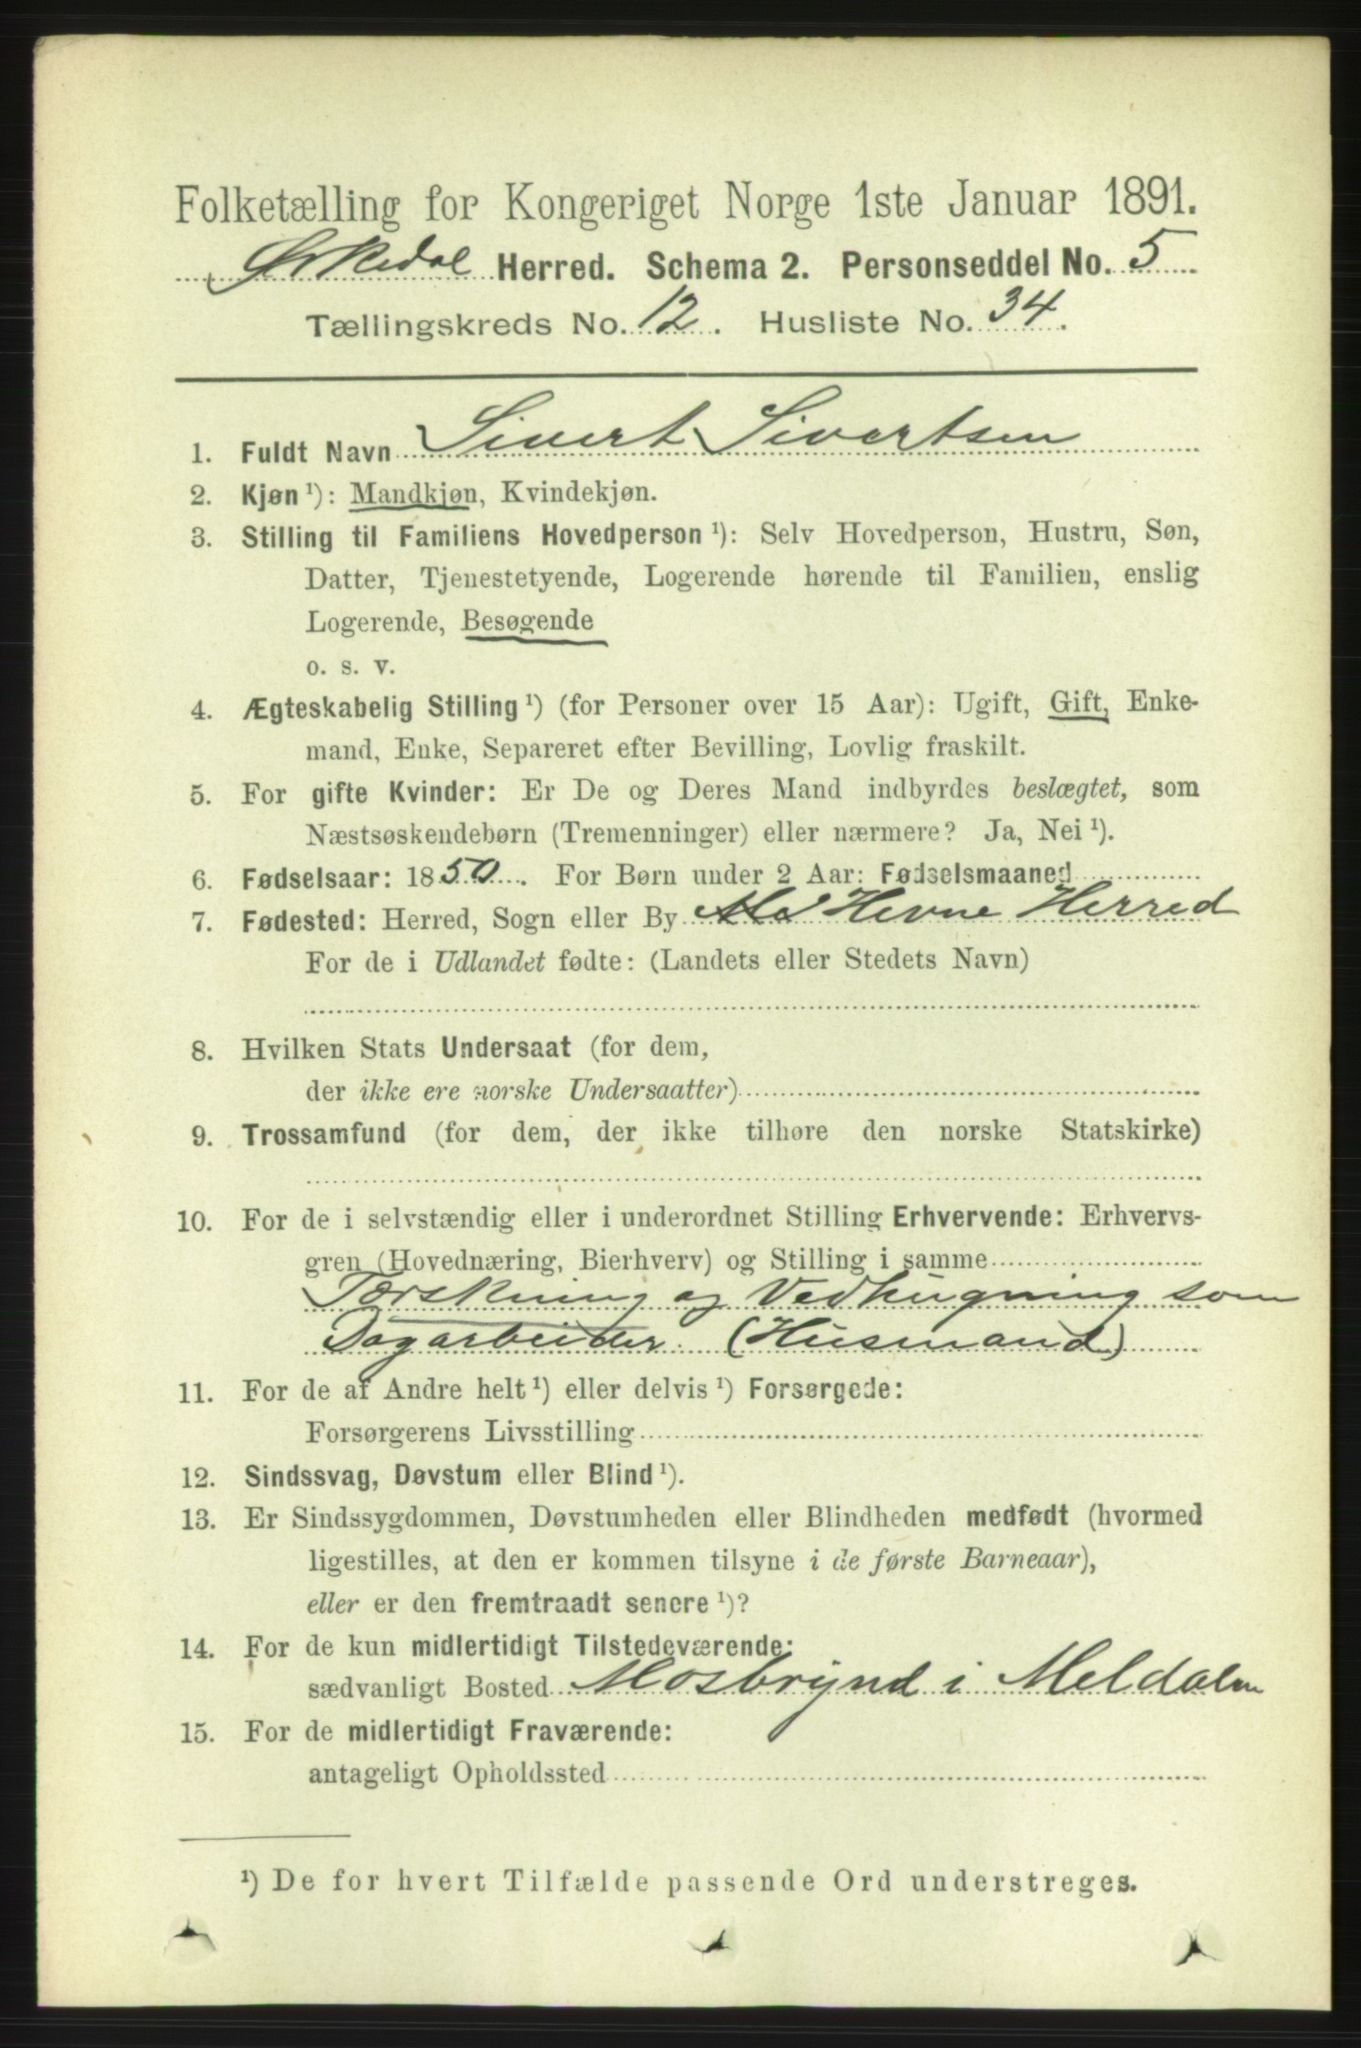 Folketælling for Kongeriget Norge 1ste Januar 1891.
Ørkedal Herred. Schema 2. Personseddel No. 5
Tællingskreds No. 12. Husliste No. 34.
1. Fuldt Navn Sivert Sivertsen
2. Kjøn ¹): Mandkjøn, Kvindekjøn.
3. Stilling til Familiens Hovedperson ¹): Selv Hovedperson, Hustru, Søn,
Datter, Tjenestetyende, Logerende hørende til Familien, enslig
Logerende, Besøgende
o. s. v.
4. Ægteskabelig Stilling ¹) (for Personer over 15 Aar): Ugift, Gift, Enke-
mand, Enke, Separeret efter Bevilling, Lovlig fraskilt.
5. For gifte Kvinder: Er De og Deres Mand indbyrdes beslægtet, som
Næstsøskendebørn (Tremenninger) eller nærmere? Ja, Nei ¹).
6. Fødselsaar: 1850. For Børn under 2 Aar: Fødselsmaaned
7. Fødested: Herred, Sogn eller By Hevne Herred
For de i Udlandet fødte: (Landets eller Stedets Navn)
8. Hvilken Stats Undersaat (for dem,
der ikke ere norske Undersaatter)
9. Trossamfund (for dem, der ikke tilhøre den norske Statskirke)
10. For de i selvstændig eller i underordnet Stilling Erhvervende: Erhvervs-
gren (Hovednæring, Bierhverv) og Stilling i samme
Tørskning og Vedhugning som
Dagarbeider (Husmand)
11. For de af Andre helt ¹) eller delvis ¹) Forsørgede:
Forsørgerens Livsstilling
12. Sindssvag, Døvstum eller Blind ¹).
13. Er Sindssygdommen, Døvstumheden eller Blindheden medfødt (hvormed
ligestilles, at den er kommen tilsyne i de første Barneaar),
eller er den fremtraadt senere ¹)?
14. For de kun midlertidigt Tilstedeværende:
sædvanligt Bosted Mosbrynd i Meldalen
15. For de midlertidigt Fraværende:
antageligt Opholdssted
¹) De for hvert Tilfælde passende Ord understreges.